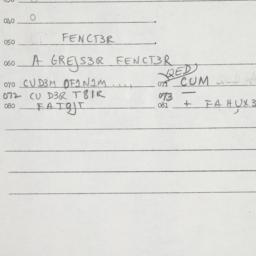 040 0
050 FENCT3R
060 A GREJS3R FENCT3R
QED
070 CUD3M OF1N1M .... 071 CUM
072 CU D3R T81R 073 —
080 FATQJT 081 + FAHUX3